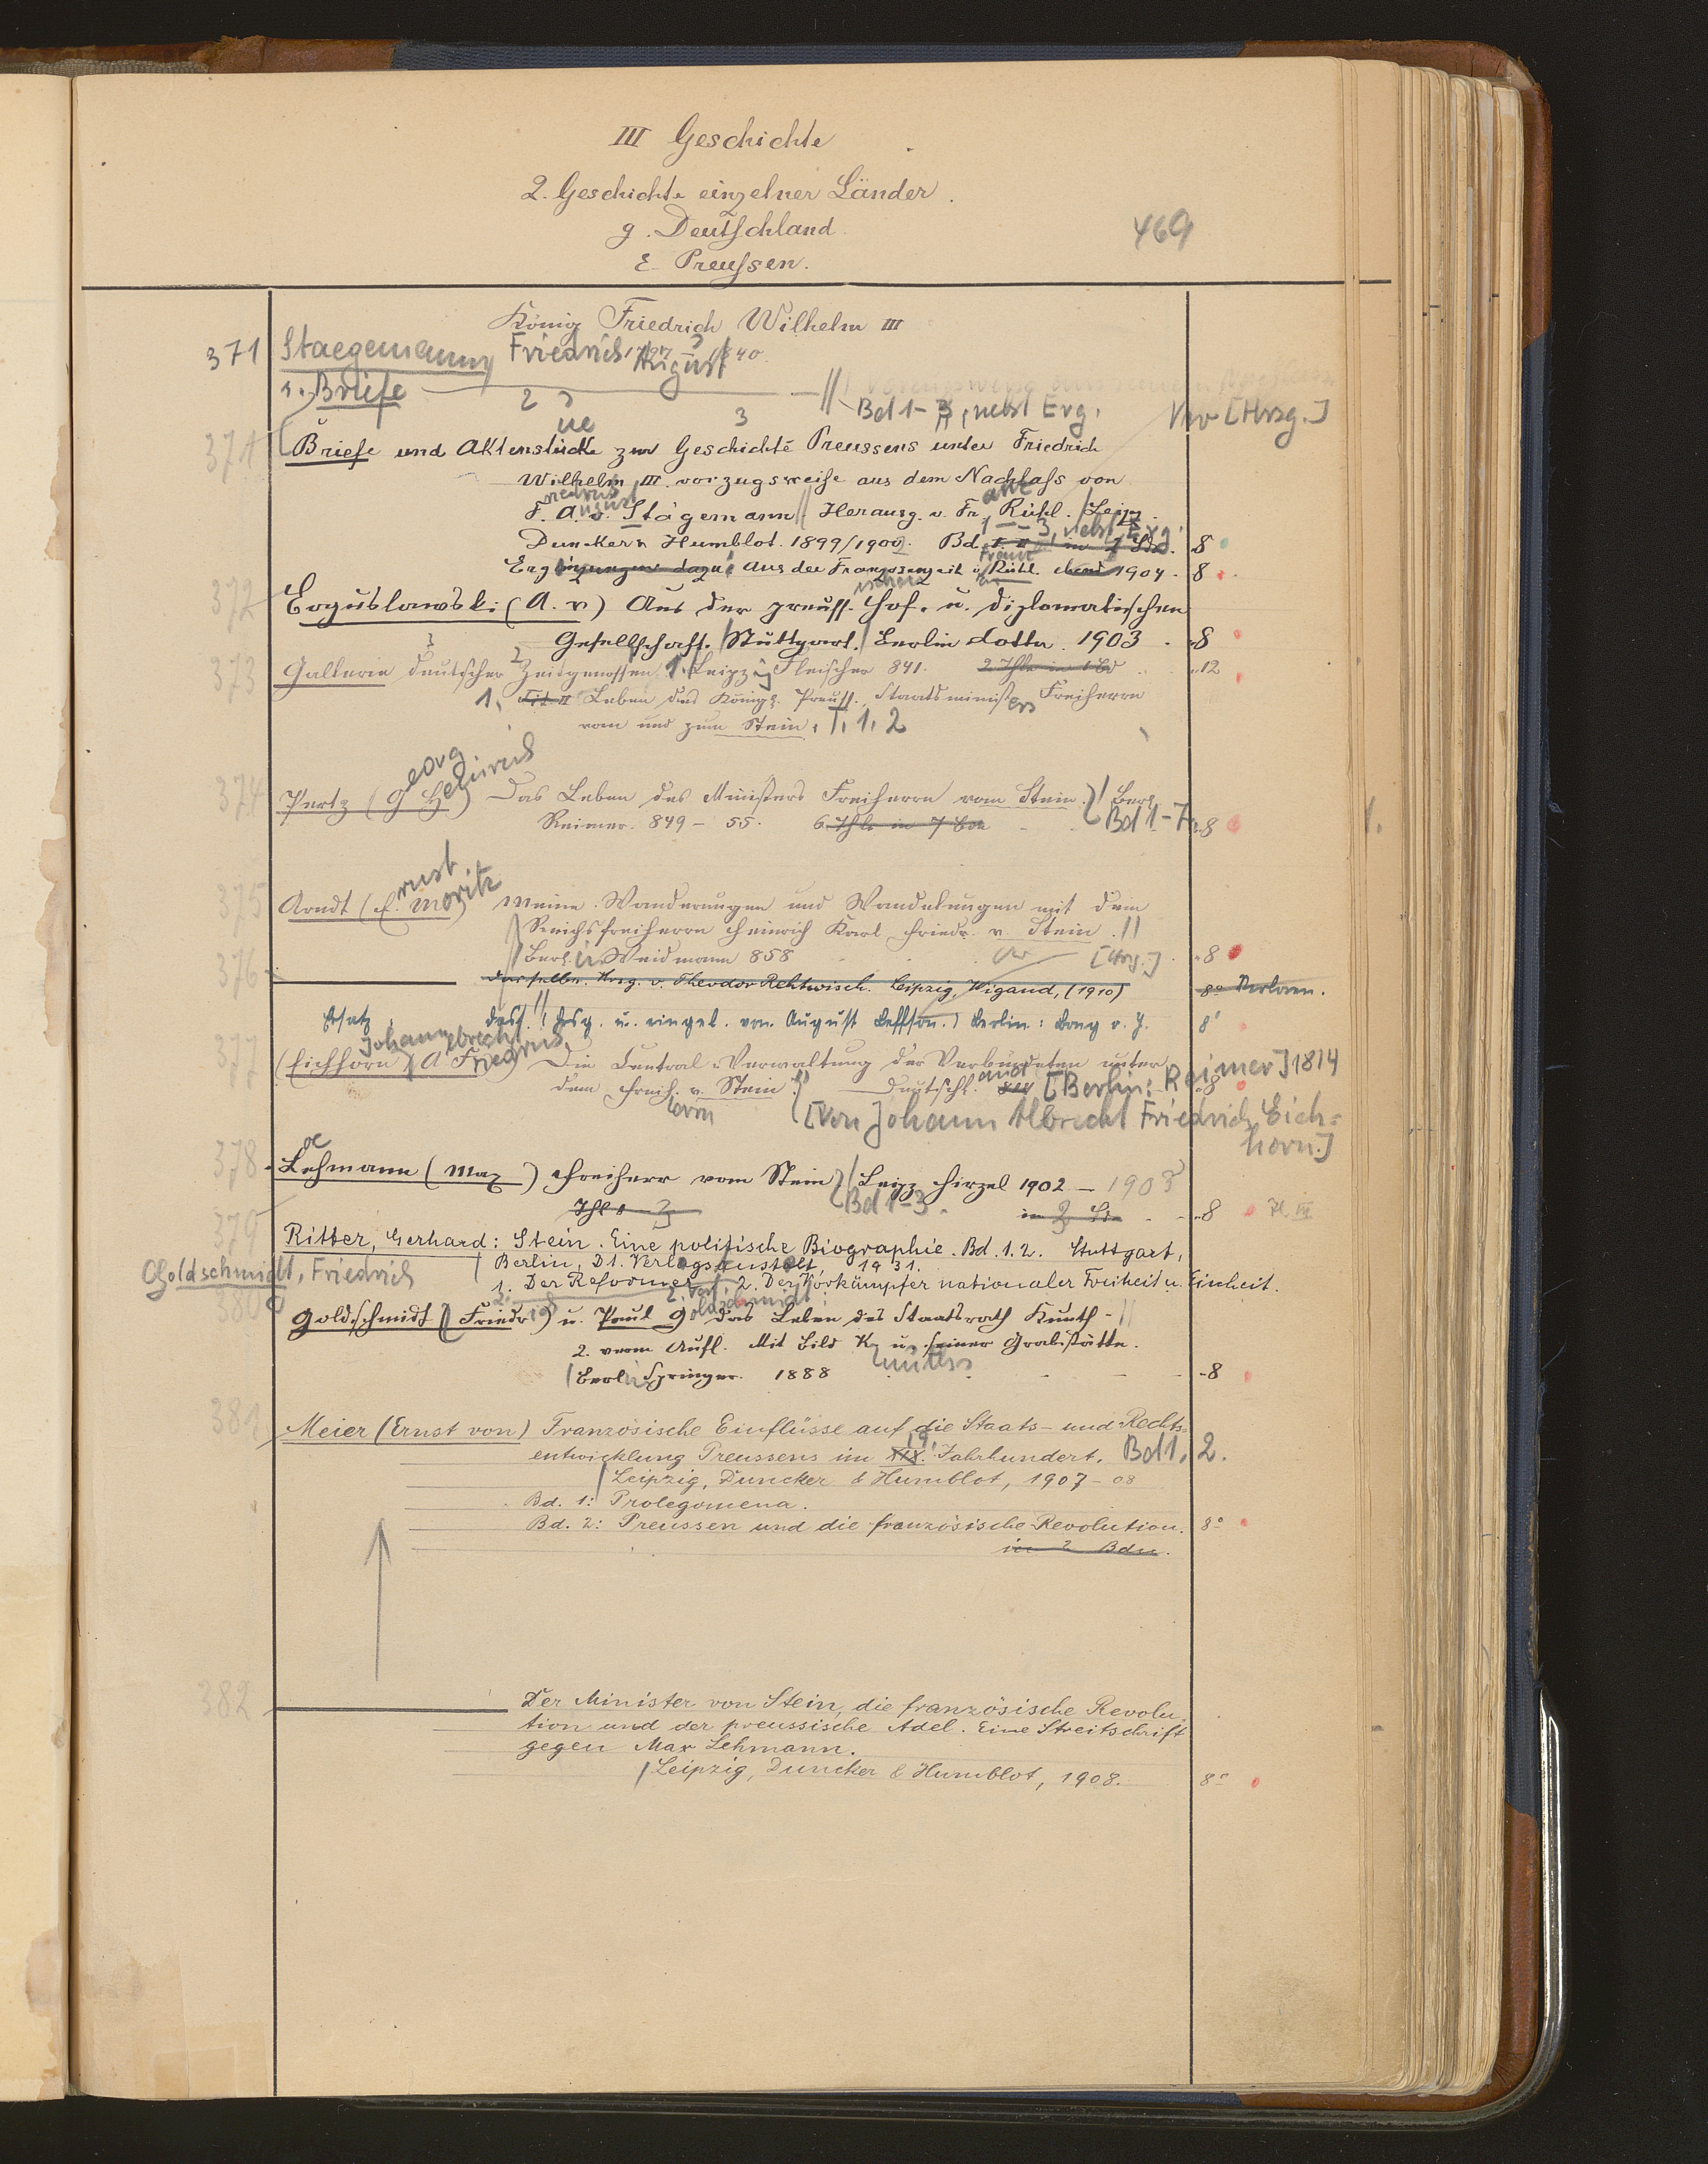 III Geschichte
2. Geschichte einzelner Länder.
g. Deutschland.
469
ε. Preussen.
König Friedrich Wilhelm III
1797 – 1840.
371 Staegemann, Friedrich August
s. Briefe
Bd 1-3, nebst Erg. [Hrsg.]
371 Briefe und Aktenstücke zur Geschichte Preussens unter Friedrich
Wilhelm III. vorzugsweise aus dem Nachlaß von
F. A. v. Stägemann // Herausg. v. Franz Rühl. / Leipz.
Duncker u Humblot. 1899/1902. Bd 1-3, nebst Erg. 8
Ergänzungen dazu: Aus der Franzosenzeit v Rühl. ebend 1904. 8
372 Boguslawski (A. v) Aus der preuss. Hof- u. diplomatischen
Gesellschaft. / Stuttgart, Berlin Cotta. 1903 8
373 Gallerie deutscher Zeitgenossen. 1. Leipzig Fleischer 841. 2 Thle in 1 Bd 12
1. Leben des Königl. Preuss. Staatsministers Freiherrn
vom und zum Stein. T. 1. 2
374 Pertz (Georg Heinrich) Das Leben des Ministers Freiherrn vom Stein. / Berl.
Reimer. 849 – 55. 6 Thle in 7 Bde Bd 1-7. 8
375 Arndt (Ernst Moritz) Meine Wanderungen und Wandelungen mit dem
Reichsfreiherrn Heinrich Karl Friedr. v. Stein. //
// Berl. Weidmann 858 [Hrsg.] 8
376 dasselbe. Hrsg. v. Theodor Rehtwisch. Leipzig, Wigand, (1910) 8° Verloren.
Ersatz dass. // (Hrsg. u. eingel. von August Leffson.) Berlin: Bong o. J. 8°
377 (Eichhorn, Johann Albrecht Friedrich) Die Central-Verwaltung der Verbündeten unter
dem Freiherrn v. Stein. Deutschl. [Berlin: Reimer] 1814 8
[Von Johann Albrecht Friedrich Eich=
horn.]
378 Lehmann (Max) Freiherr vom Stein / Leipz Hirzel 1902 – 1905
Thl 1 – 3 Bd 1-3. in 3 Bd 8
379 Ritter, Gerhard: Stein. Eine politische Biographie. Bd. 1. 2. Stuttgart,
/ Berlin, Dt. Verlagsanstalt, 1931.
1. Der Reformer / 2. Der Vorkämpfer nationaler Freiheit u. Einheit.
Goldschmidt, Friedrich
380 Goldschmidt (Friedrich) u. Paul Goldschmidt das Leben des Staatsrath Kunth - //
2. verm Aufl. Mit Bild K. u. seiner Grabstätte.
/ Berlin Springer. 1888 8
381 Meier (Ernst von) Französische Einflüsse auf die Staats- und Rechts-
entwicklung Preussens im XIX. 19. Jahrhundert. Bd 1. 2.
/ Leipzig, Duncker & Humblot, 1907 – 08
Bd. 1: Prolegomena.
Bd. 2: Preussen und die französische Revolution. 8°
in 2 Bdn.
382 Der Minister von Stein, die französische Revolu-
tion und der preussische Adel. Eine Streitschrift
gegen Max Lehmann.
/ Leipzig, Duncker & Humblot, 1908. 8°